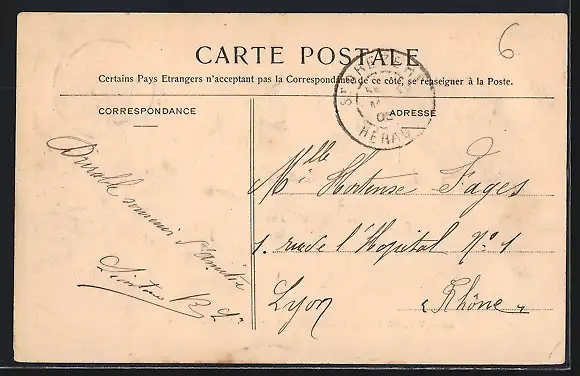 6
CARTE POSTALE
Certains Pays Etrangers n'acceptant pas la Correspondance de ce côté, se renseigner à la Poste.
CORRESPONDANCE
ADRESSE
HERAU
05
Durable souvenir d'amitié
Mlle Hortense Fages
1. rue de l'Hopital N° 1
Lyon « Rhône »